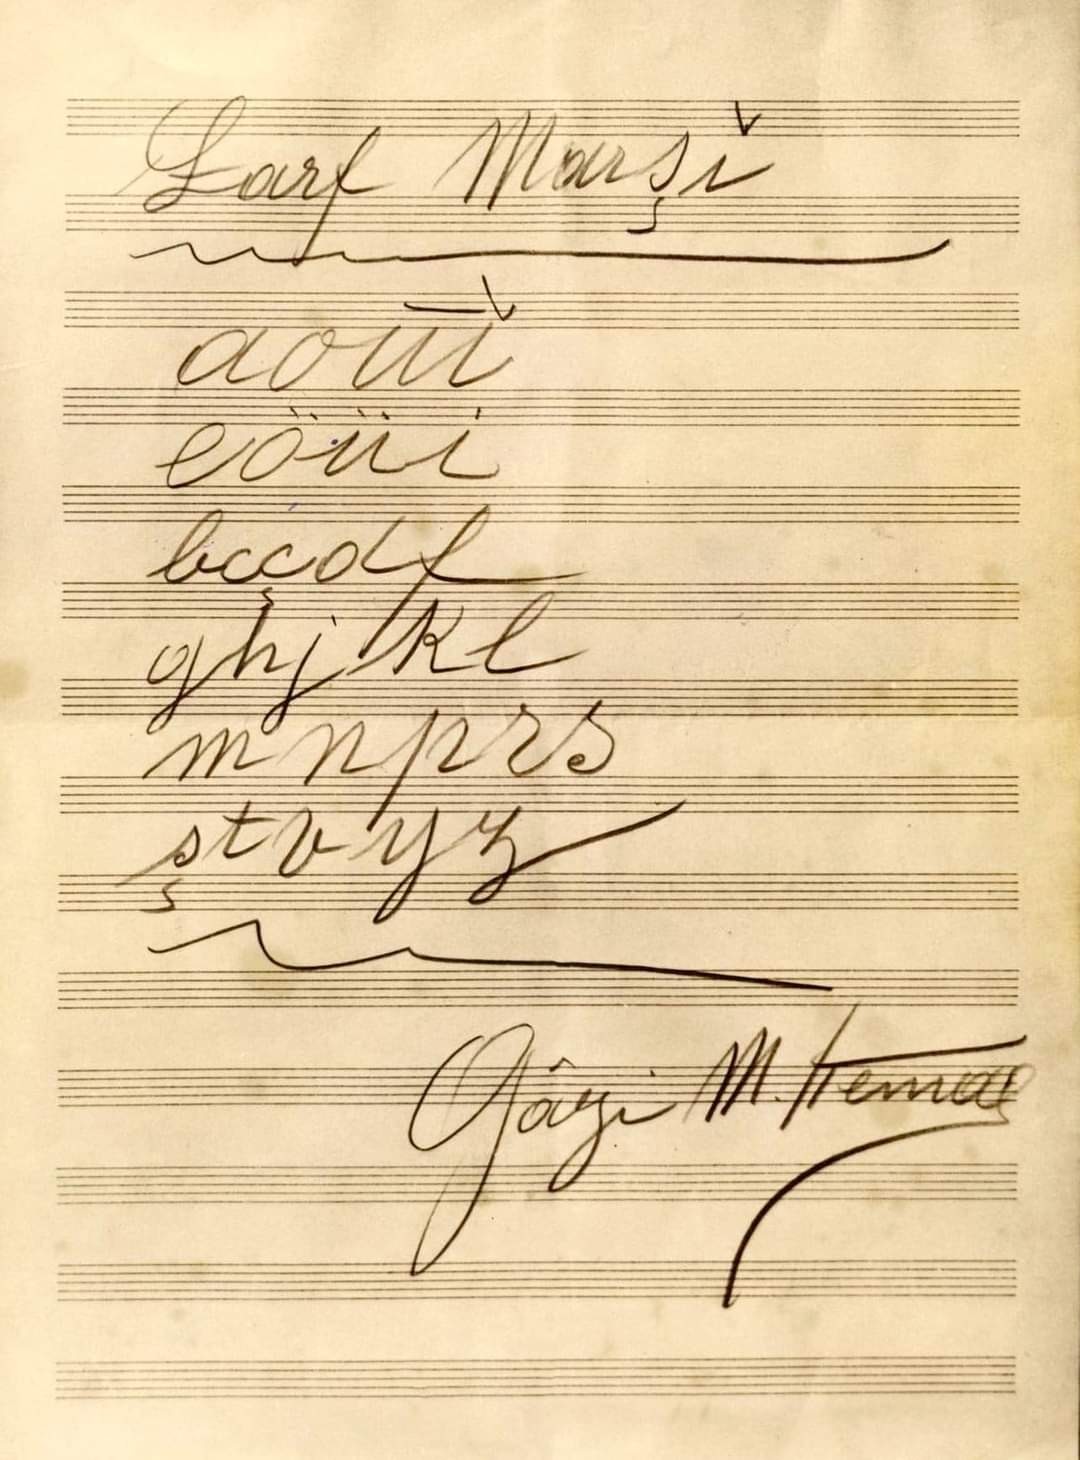 Harf Marşǐ
a o ū ǐ
e ö ü i
b c ç d f
g h j k l
m n p r s
ş t v y z
Gâzi M. Kemal